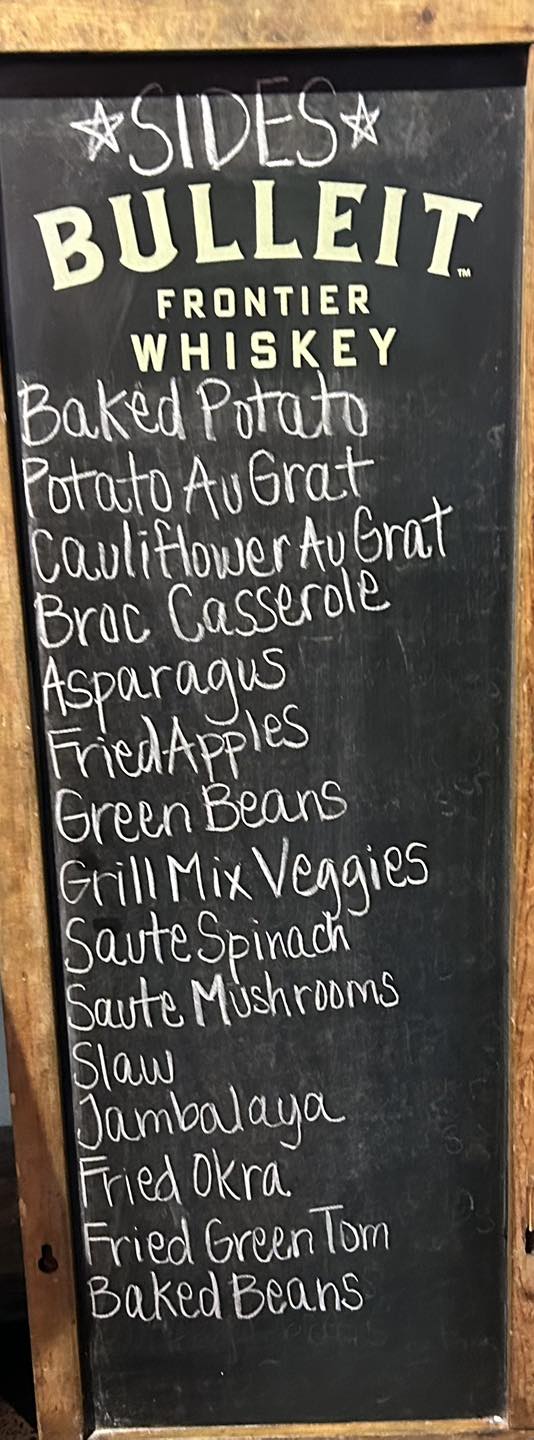 ☆SIDES☆
BULLEIT™
FRONTIER
WHISKEY
Baked Potato
Potato Au Grat
Cauliflower Au Grat
Broc Casserole
Asparagus
Fried Apples
Green Beans
Grill Mix Veggies
Saute Spinach
Saute Mushrooms
Slaw
Jambalaya
Fried Okra
Fried Green Tom
Baked Beans